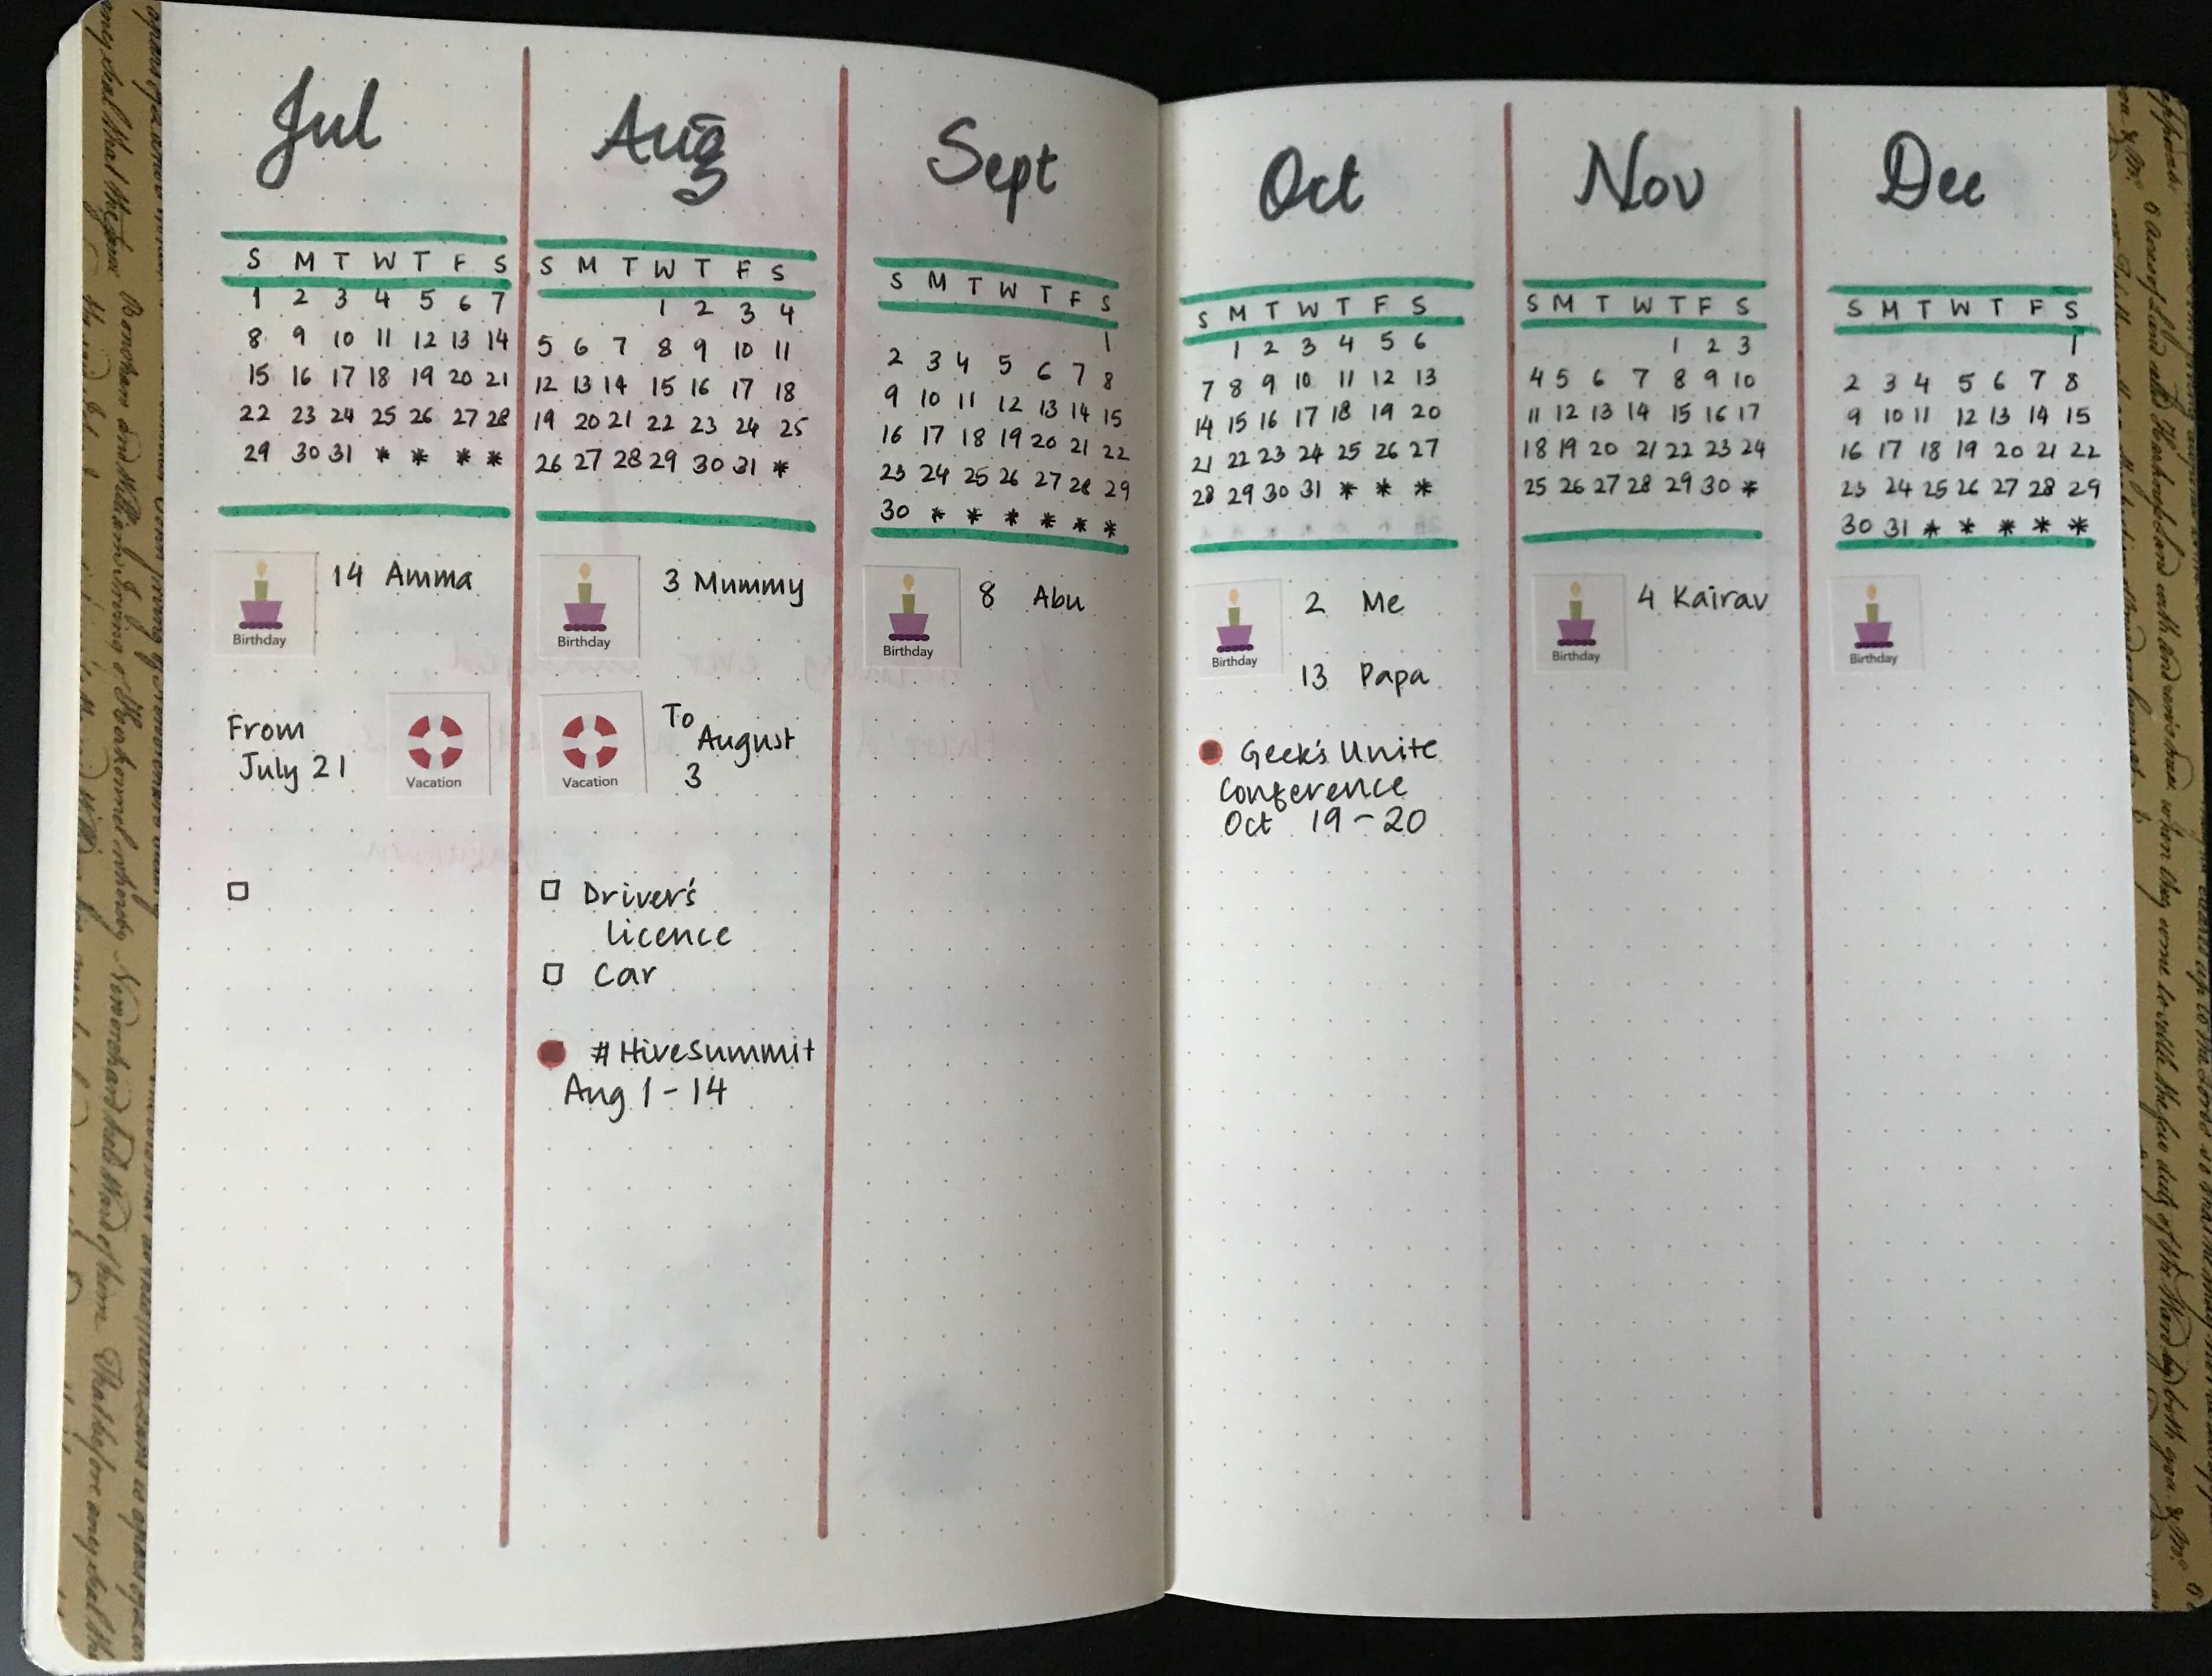 Jul
S M T W T F S
1 2 3 4 5 6 7
8 9 10 11 12 13 14
15 16 17 18 19 20 21
22 23 24 25 26 27 28
29 30 31 * * * *
Birthday
14 Amma
From
July 21
Vacation
Aug
S M T W T F S
1 2 3 4
5 6 7 8 9 10 11
12 13 14 15 16 17 18
19 20 21 22 23 24 25
26 27 28 29 30 31 *
Birthday
3 Mummy
Vacation
To
August
3
Driver's
licence
Car
#HiveSummit
Aug 1-14
Sept
S M T W T F S
1
2 3 4 5 6 7 8
9 10 11 12 13 14 15
16 17 18 19 20 21 22
23 24 25 26 27 28 29
30 * * * * * *
Birthday
8 Abu
Oct
S M T W T F S
1 2 3 4 5 6
7 8 9 10 11 12 13
14 15 16 17 18 19 20
21 22 23 24 25 26 27
28 29 30 31 * * *
Birthday
2 Me
13 Papa
Geek's Unite
Conference
Oct 19-20
Nov
S M T W T F S
1 2 3
4 5 6 7 8 9 10
11 12 13 14 15 16 17
18 19 20 21 22 23 24
25 26 27 28 29 30 *
Birthday
4 Kairav
Dec
S M T W T F S
1
2 3 4 5 6 7 8
9 10 11 12 13 14 15
16 17 18 19 20 21 22
23 24 25 26 27 28 29
30 31 * * * * *
Birthday